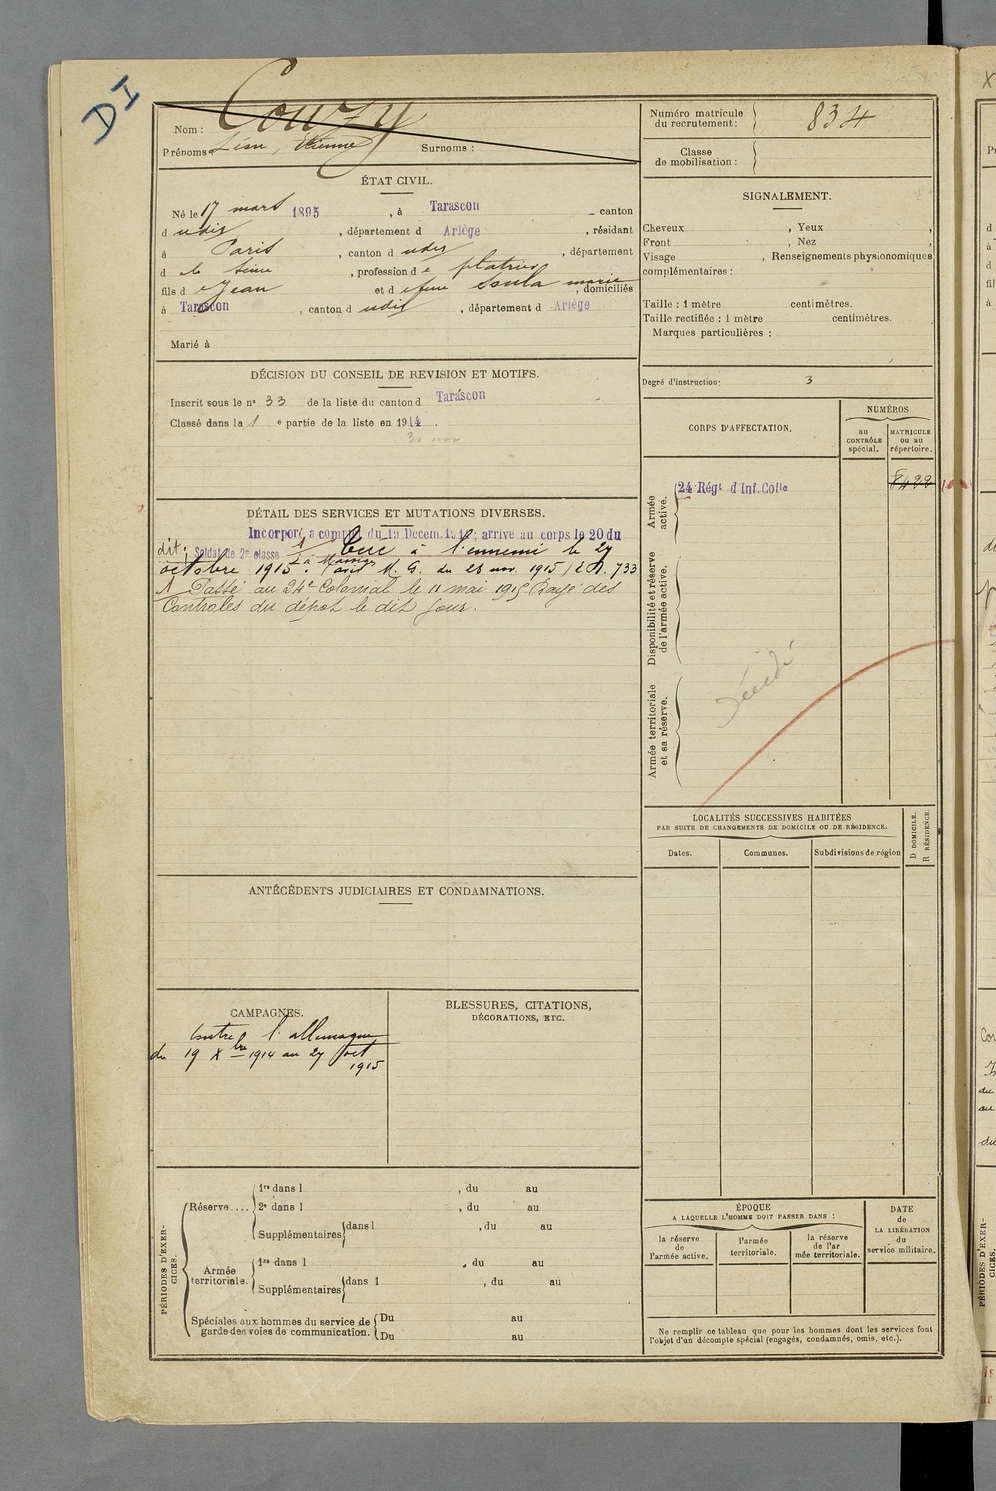 DI
Nom : Couzy
Prénoms : Léon, Etienne Surnoms :
Numéro matricule du recrutement : 834
Classe de mobilisation :
ÉTAT CIVIL.
Né le 17 mars 1895, à Tarascon canton
d udit, département d Ariège, résidant
à Paris, canton d udit, département
d e la Seine, profession d e platrier
fils d e Jean et d e feue Soula marie, domiciliés
à Tarascon, canton d udit, département d Ariège
Marié à
SIGNALEMENT.
Cheveux , Yeux ,
Front , Nez
Visage , Renseignements physionomiques
complémentaires :
Taille : 1 mètre centimètres.
Taille rectifiée : 1 mètre centimètres.
Marques particulières :
Degré d'instruction : 3
DÉCISION DU CONSEIL DE REVISION ET MOTIFS.
Inscrit sous le no 33 de la liste du canton d Tarascon
Classé dans la 1 e partie de la liste en 1914.
DÉTAIL DES SERVICES ET MUTATIONS DIVERSES.
Incorporé a compter du 19 Decem. 1914; arrive au corps le 20 du
dit; Soldat de 2e classe 1 Tué à l'ennemi le 27
octobre 1915. avis M. G. du 23 nov. 1915 733
1 Passé au 24e Colonial le 11 mai 1915 Rayé des
Controles du dépot le dit jour.
CORPS D'AFFECTATION.
NUMÉROS
au CONTRÔLE spécial.
MATRICULE ou au répertoire.
Armée active.
24 Régt d Inf. Colle
8422
Disponibilité et réserve de l'armée active.
Armée territoriale et sa réserve.
Décédé
LOCALITÉS SUCCESSIVES HABITÉES
PAR SUITE DE CHANGEMENTS DE DOMICILE OU DE RÉSIDENCE.
Dates.
Communes.
Subdivisions de région
D DOMICILE.
R RÉSIDENCE.
ANTÉCÉDENTS JUDICIAIRES ET CONDAMNATIONS.
CAMPAGNES.
Contre l'allemagne
du 19 Xbre 1914 au 27 oct
1915
BLESSURES, CITATIONS,
DÉCORATIONS, ETC.
PÉRIODES D'EXERCICES.
Réserve....
1re dans l , du au
2e dans l , du au
Supplémentaires dans l , du au
Armée territoriale.
1re dans l , du au
Supplémentaires dans l , du au
Spéciales aux hommes du service de
garde des voies de communication.
Du au
Du au
ÉPOQUE
A LAQUELLE L'HOMME DOIT PASSER DANS :
la réserve de l'armée active.
l'armée territoriale.
la réserve de l'ar mée territoriale.
DATE de LA LIBÉRATION du service militaire.
Ne remplir ce tableau que pour les hommes dont les services font
l'objet d'un décompte spécial (engagés, condamnés, omis, etc.).